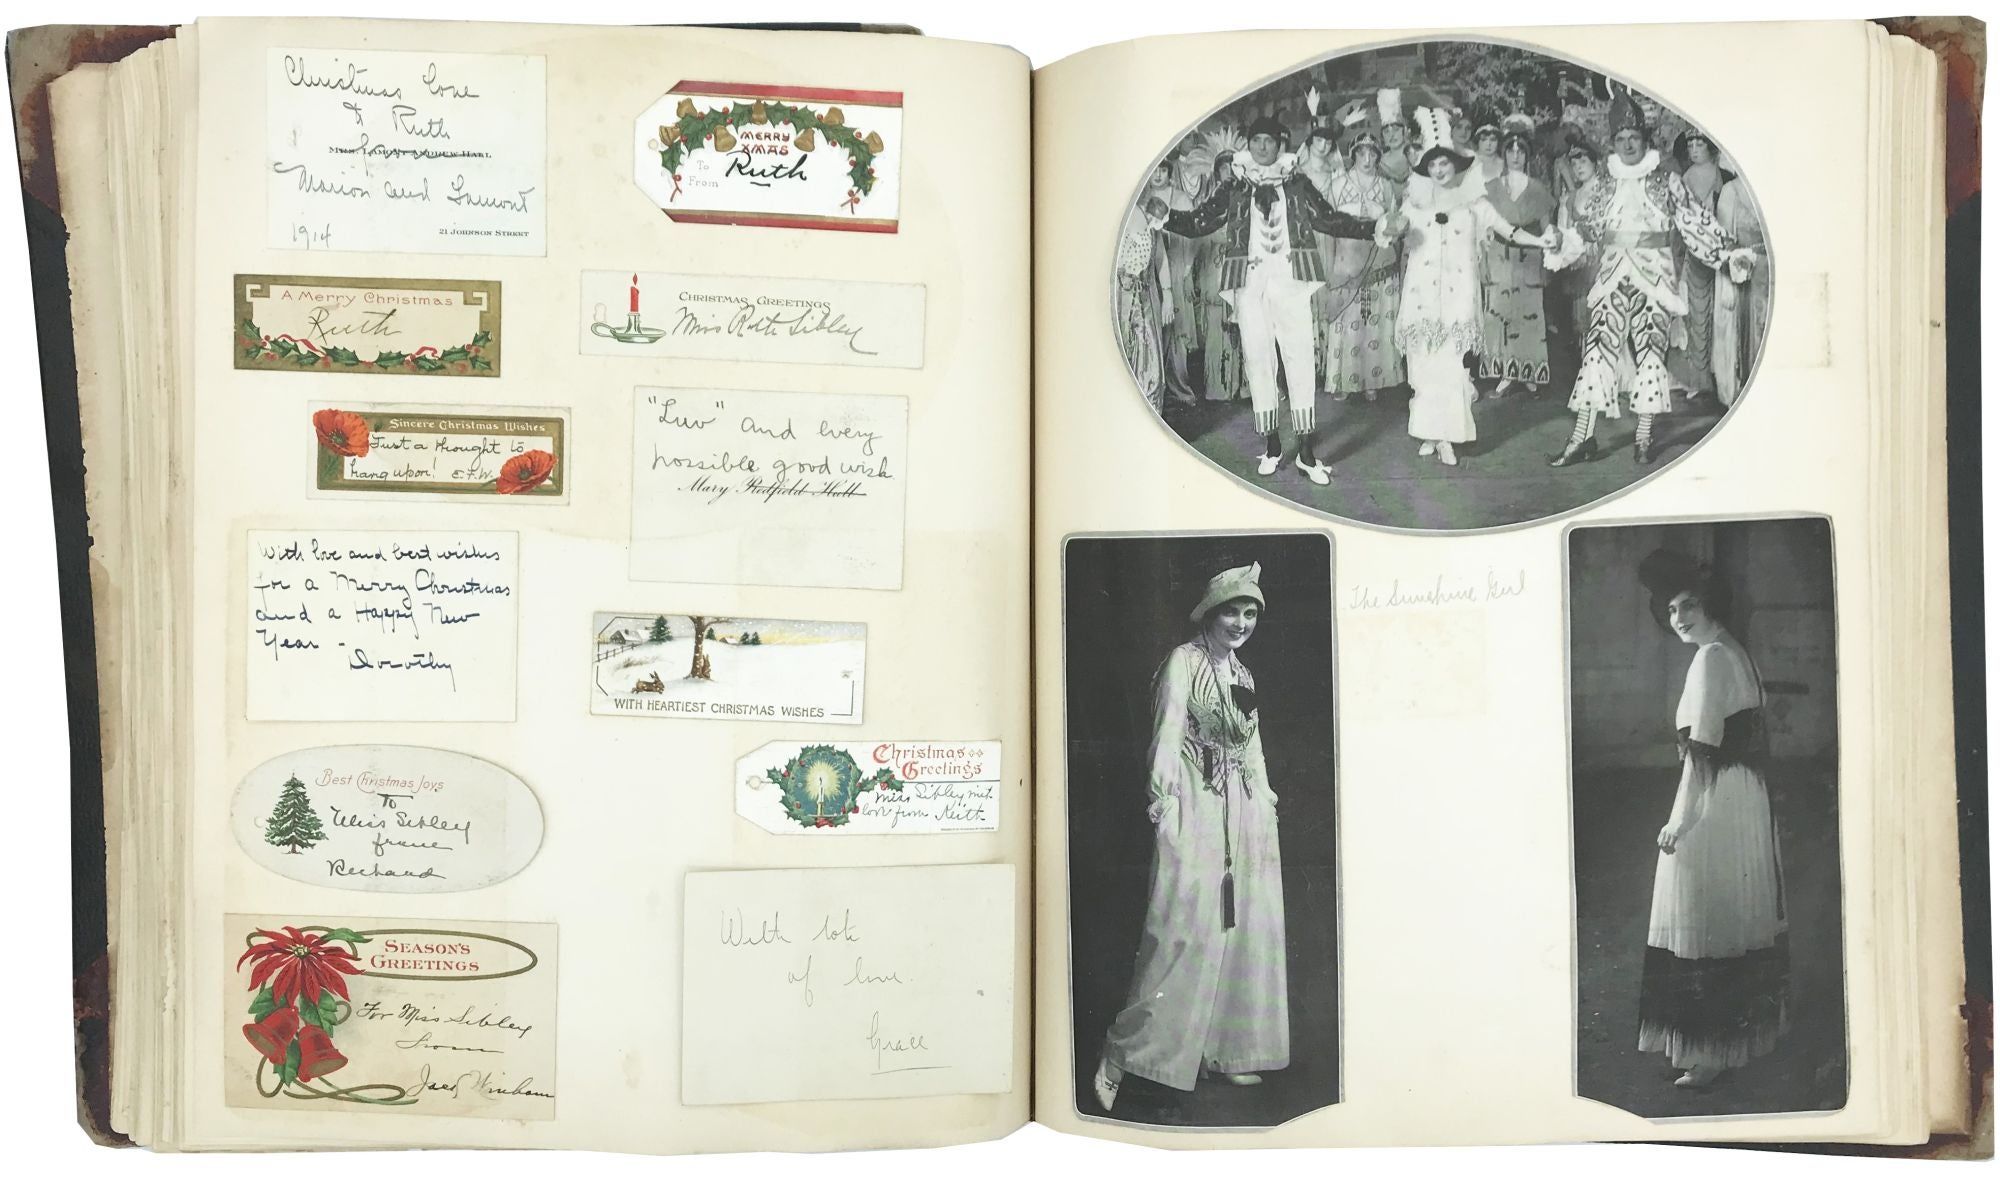 Christmas Love
to Ruth
from
Mrs. Lamont Andrew Hall
Marion and Lamont
1914
21 Johnson Street
MERRY
XMAS
To
From
Ruth
A Merry Christmas
Ruth
CHRISTMAS GREETINGS
Miss Ruth Sibley
Sincere Christmas Wishes
Just a thought to
hang upon! E.F.W.
"Luv" and every
possible good wish
Mary Redfield Hall
With love and best wishes
for a Merry Christmas
and a Happy New
Year -
Dorothy
WITH HEARTIEST CHRISTMAS WISHES
Best Christmas Joys
To
Miss Sibley
from
Richard
Christmas
Greetings
Miss Sibley
love from Keith
SEASON'S
GREETINGS
For Miss Sibley
From
Jack
With lots
of love.
Grace
The Sunshine Girl